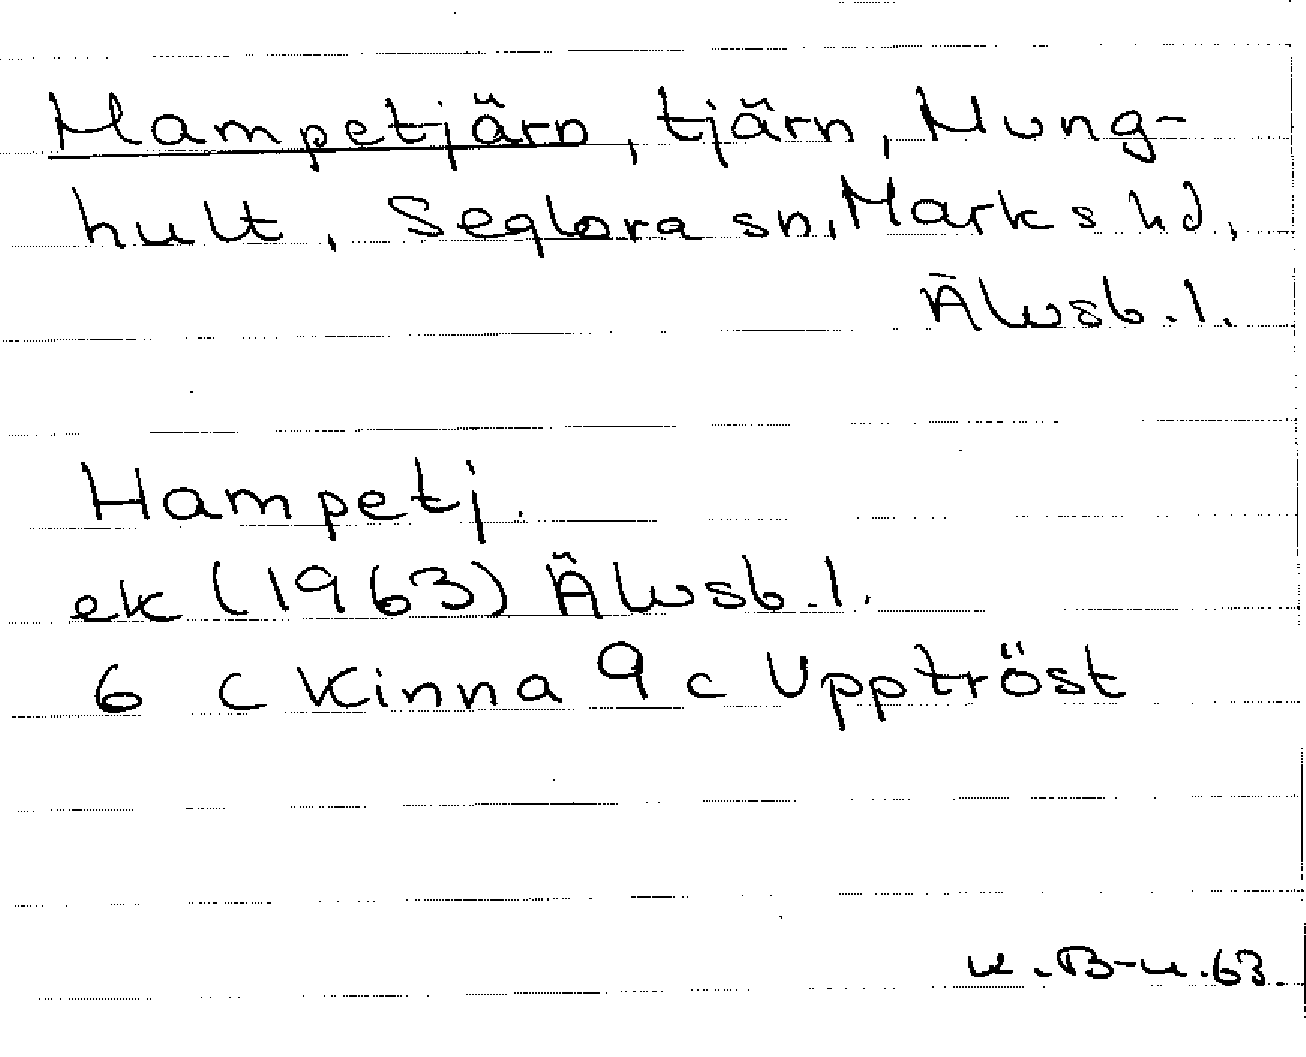 Hampetjärn, tjärn, Mung-
hult, Seglora sn, Marks hd,
Älvsb. l.
Hampetj.
ek (1963) Älvsb. l.
6 C Kinna 9 c Uppträst
63.